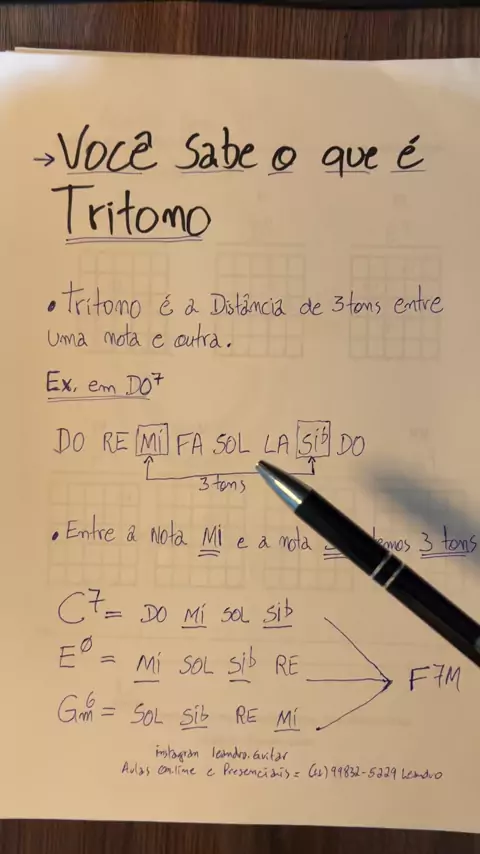 → Você sabe o que é
Tritomo
• Tritomo é a Distância de 3 tons entre
uma nota e outra.
Ex. em DO7
DO RE Mi FA SOL LA Sib DO
3 tons
• Entre a Nota Mi e a nota temos 3 tons
C7 = DO Mi SOL Sib
EØ = Mi SOL Sib RE
Gm6 = SOL Sib RE Mi
F7M
instagram leandro.guitar
Aulas on.line e Presenciais = (11) 99832-5229 Leandro